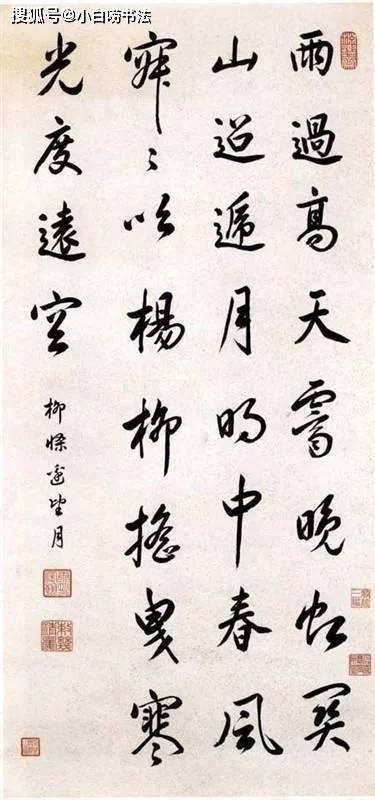 搜狐号@小白唠书法
雨過高天霽晚虹關
山迢遞月明中春風
寂〻吹楊柳搖曳寒
光度遠空
柳條邊望月